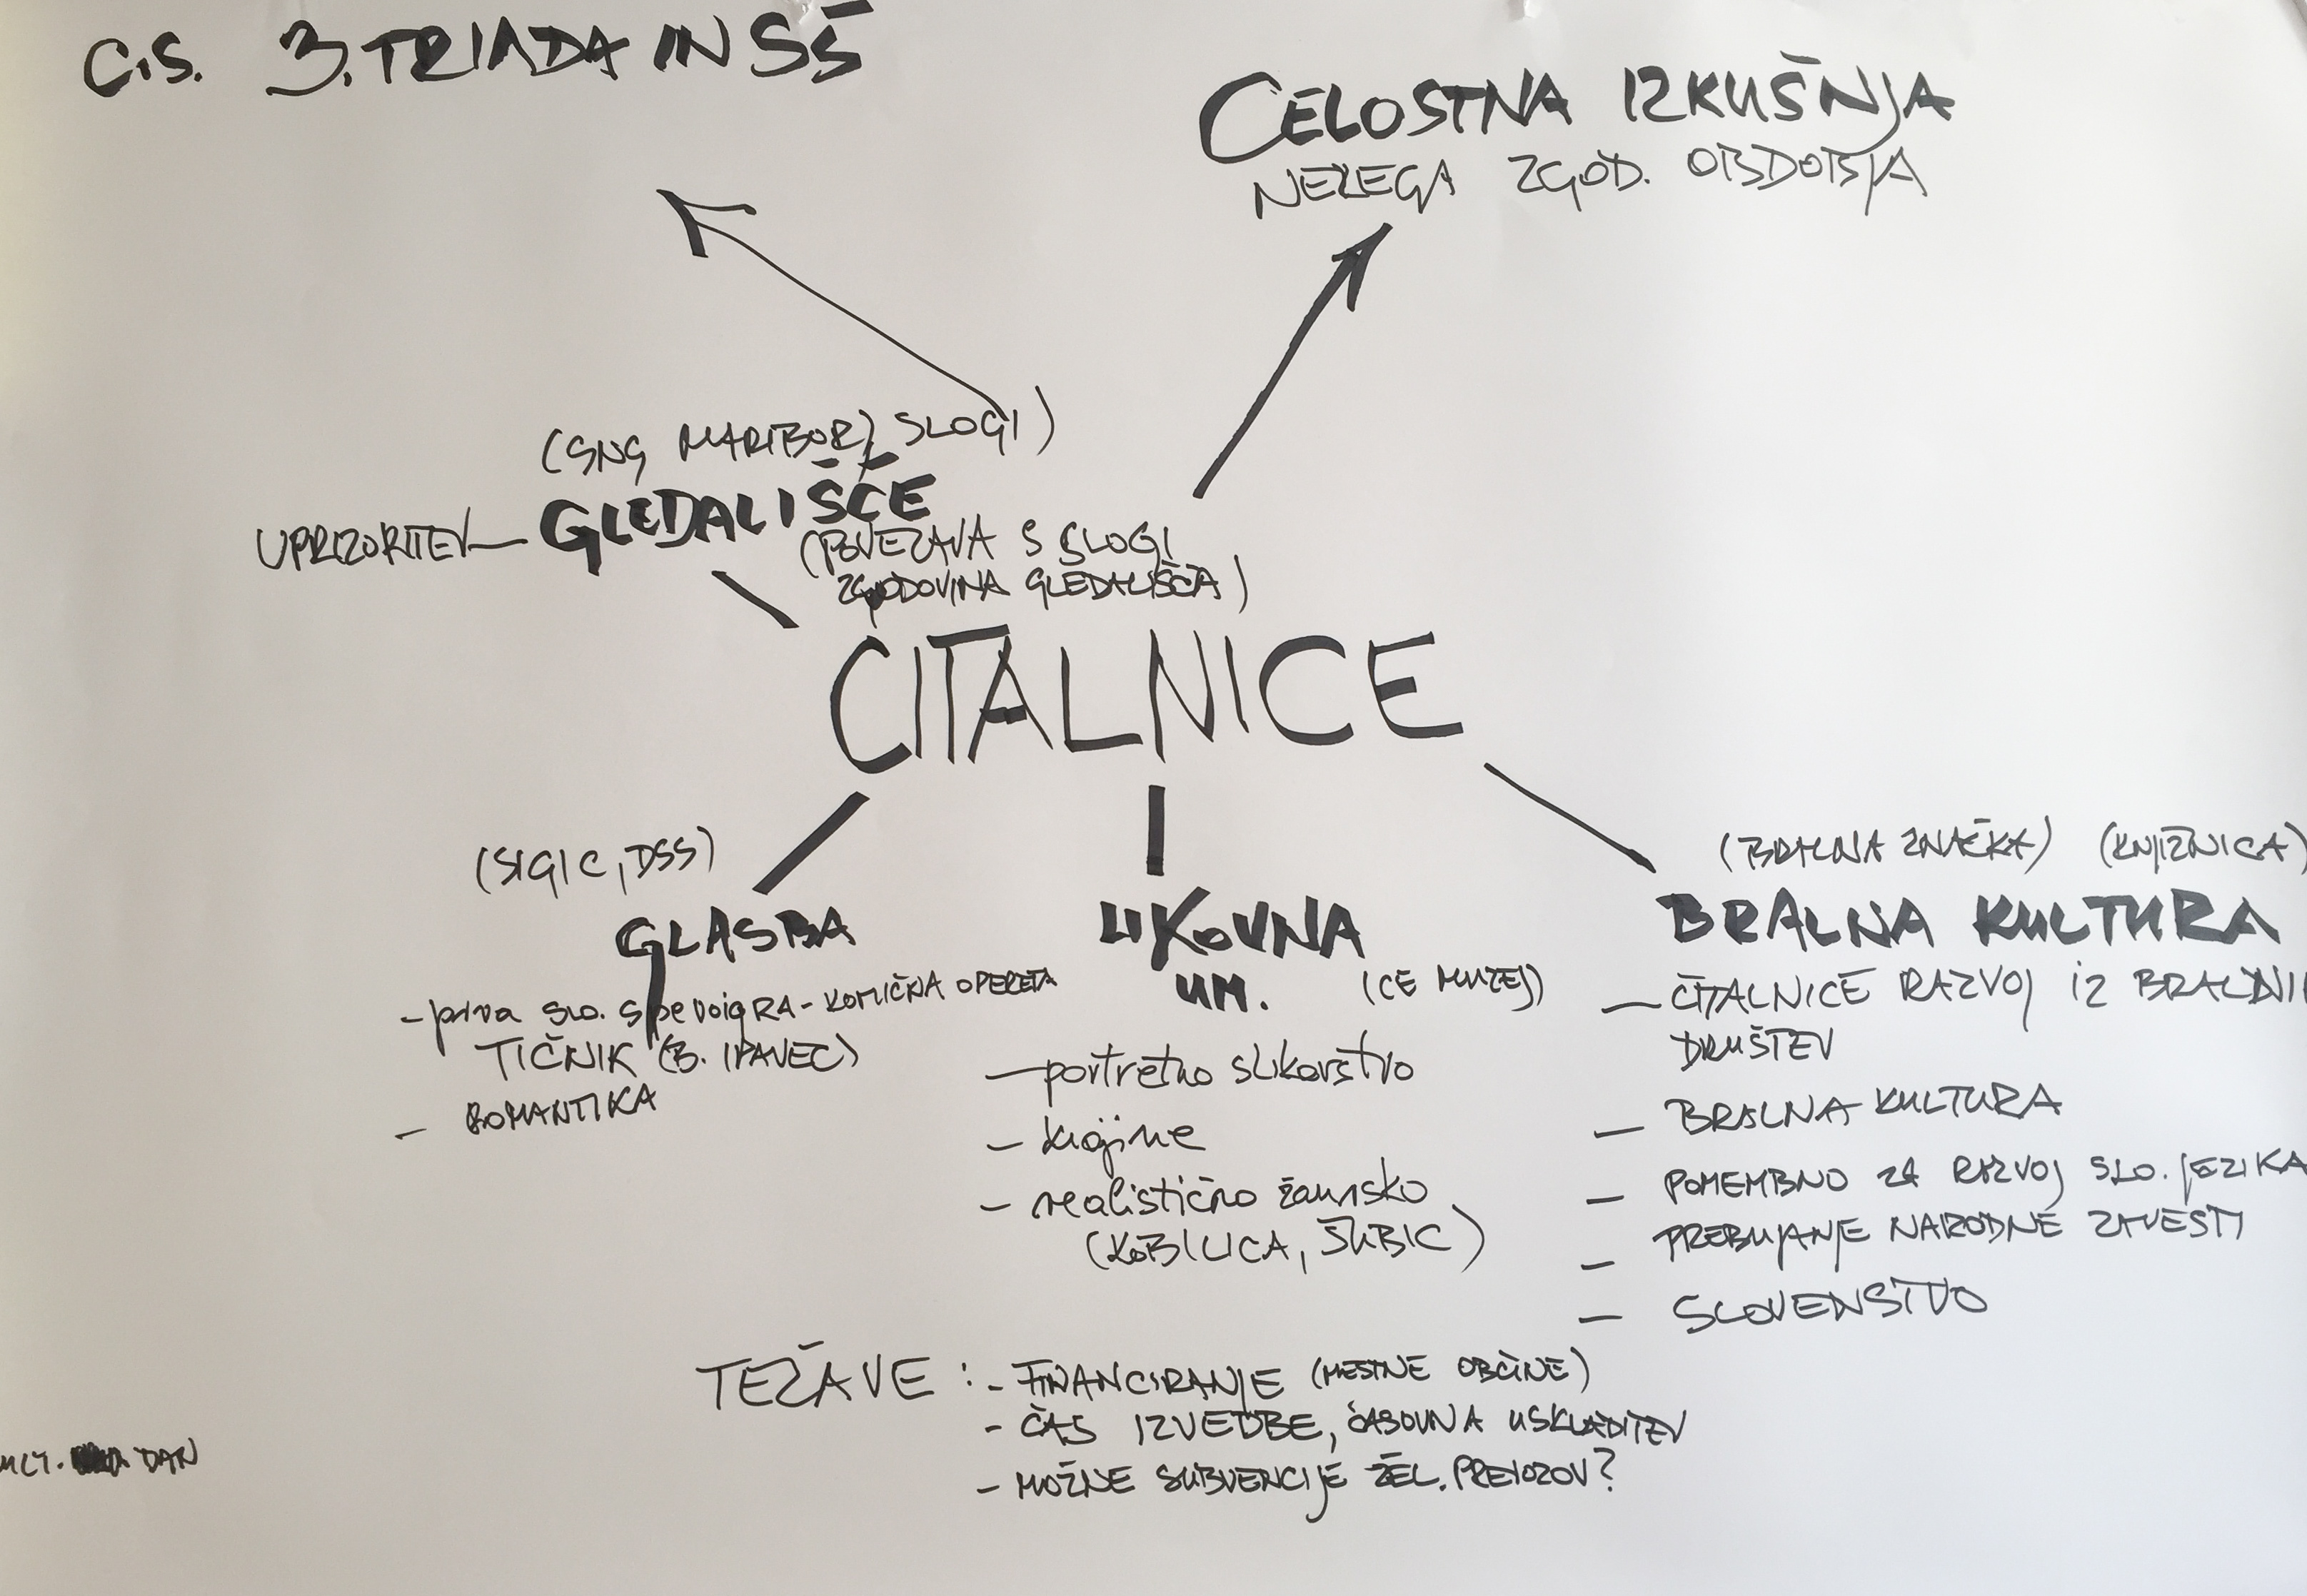 C.S. 3. TRIADA IN SŠ
CELOSTNA IZKUŠNJA
NEKEGA ZGOD. OBDOBJA
(SNG MARIBOR, SLOGI)
UPRIZORITEV — GLEDALIŠČE
(POVEZAVA S SLOGI
ZGODOVINA GLEDALIŠČA)
ČITALNICE
(SIGIC, DSS)
GLASBA
- prva slo. spevoigra - KOMIČNA OPERETA
TIČNIK (B. IPAVEC)
- ROMANTIKA
LIKOVNA
UM. (CE MUZEJ)
- portretno slikarstvo
- krajine
- realistično žanrsko
(KOBILICA, ŠUBIC)
(BRALNA ZNAČKA) (KNJIŽNICA)
BRALNA KULTURA
- ČITALNICE RAZVOJ IZ BRALNI
DRUŠTEV
- BRALNA KULTURA
- POMEMBNO ZA RAZVOJ SLO. JEZIKA
- PREBUJANJE NARODNE ZAVESTI
- SLOVENSTVO
TEŽAVE : - FINANCIRANJE (MESTNE OBČINE)
- ČAS IZVEDBE, ČASOVNA USKLADITEV
- MOŽNE SUBVENCIJE ŽEL. PREVOZOV?
DAN